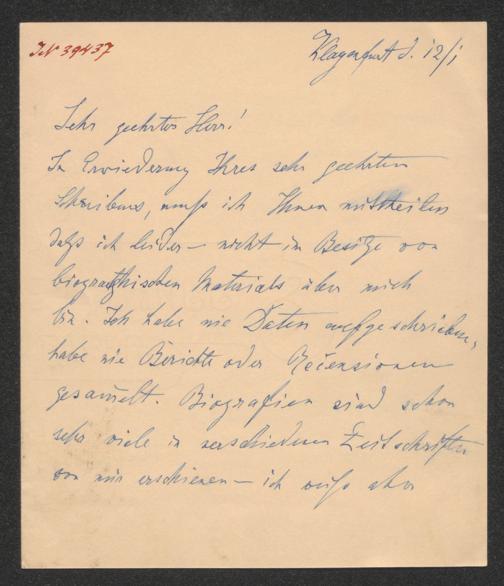 IN 39437
Klagenfurt d. 12/1
Sehr geehrter Herr!
In Erwiederung Ihres sehr geehrten
Schreibens, muß ich Ihnen mittheilen
daß ich leider – nicht im Besitze von
biografischen Materials über mich
bin. Ich habe nie Daten aufgeschrieben,
habe nie Berichte oder Recensionen
gesam̅elt. Biografien sind schon
sehr viele in verschiedenen Zeitschriften
von mir erschienen – ich weiß aber